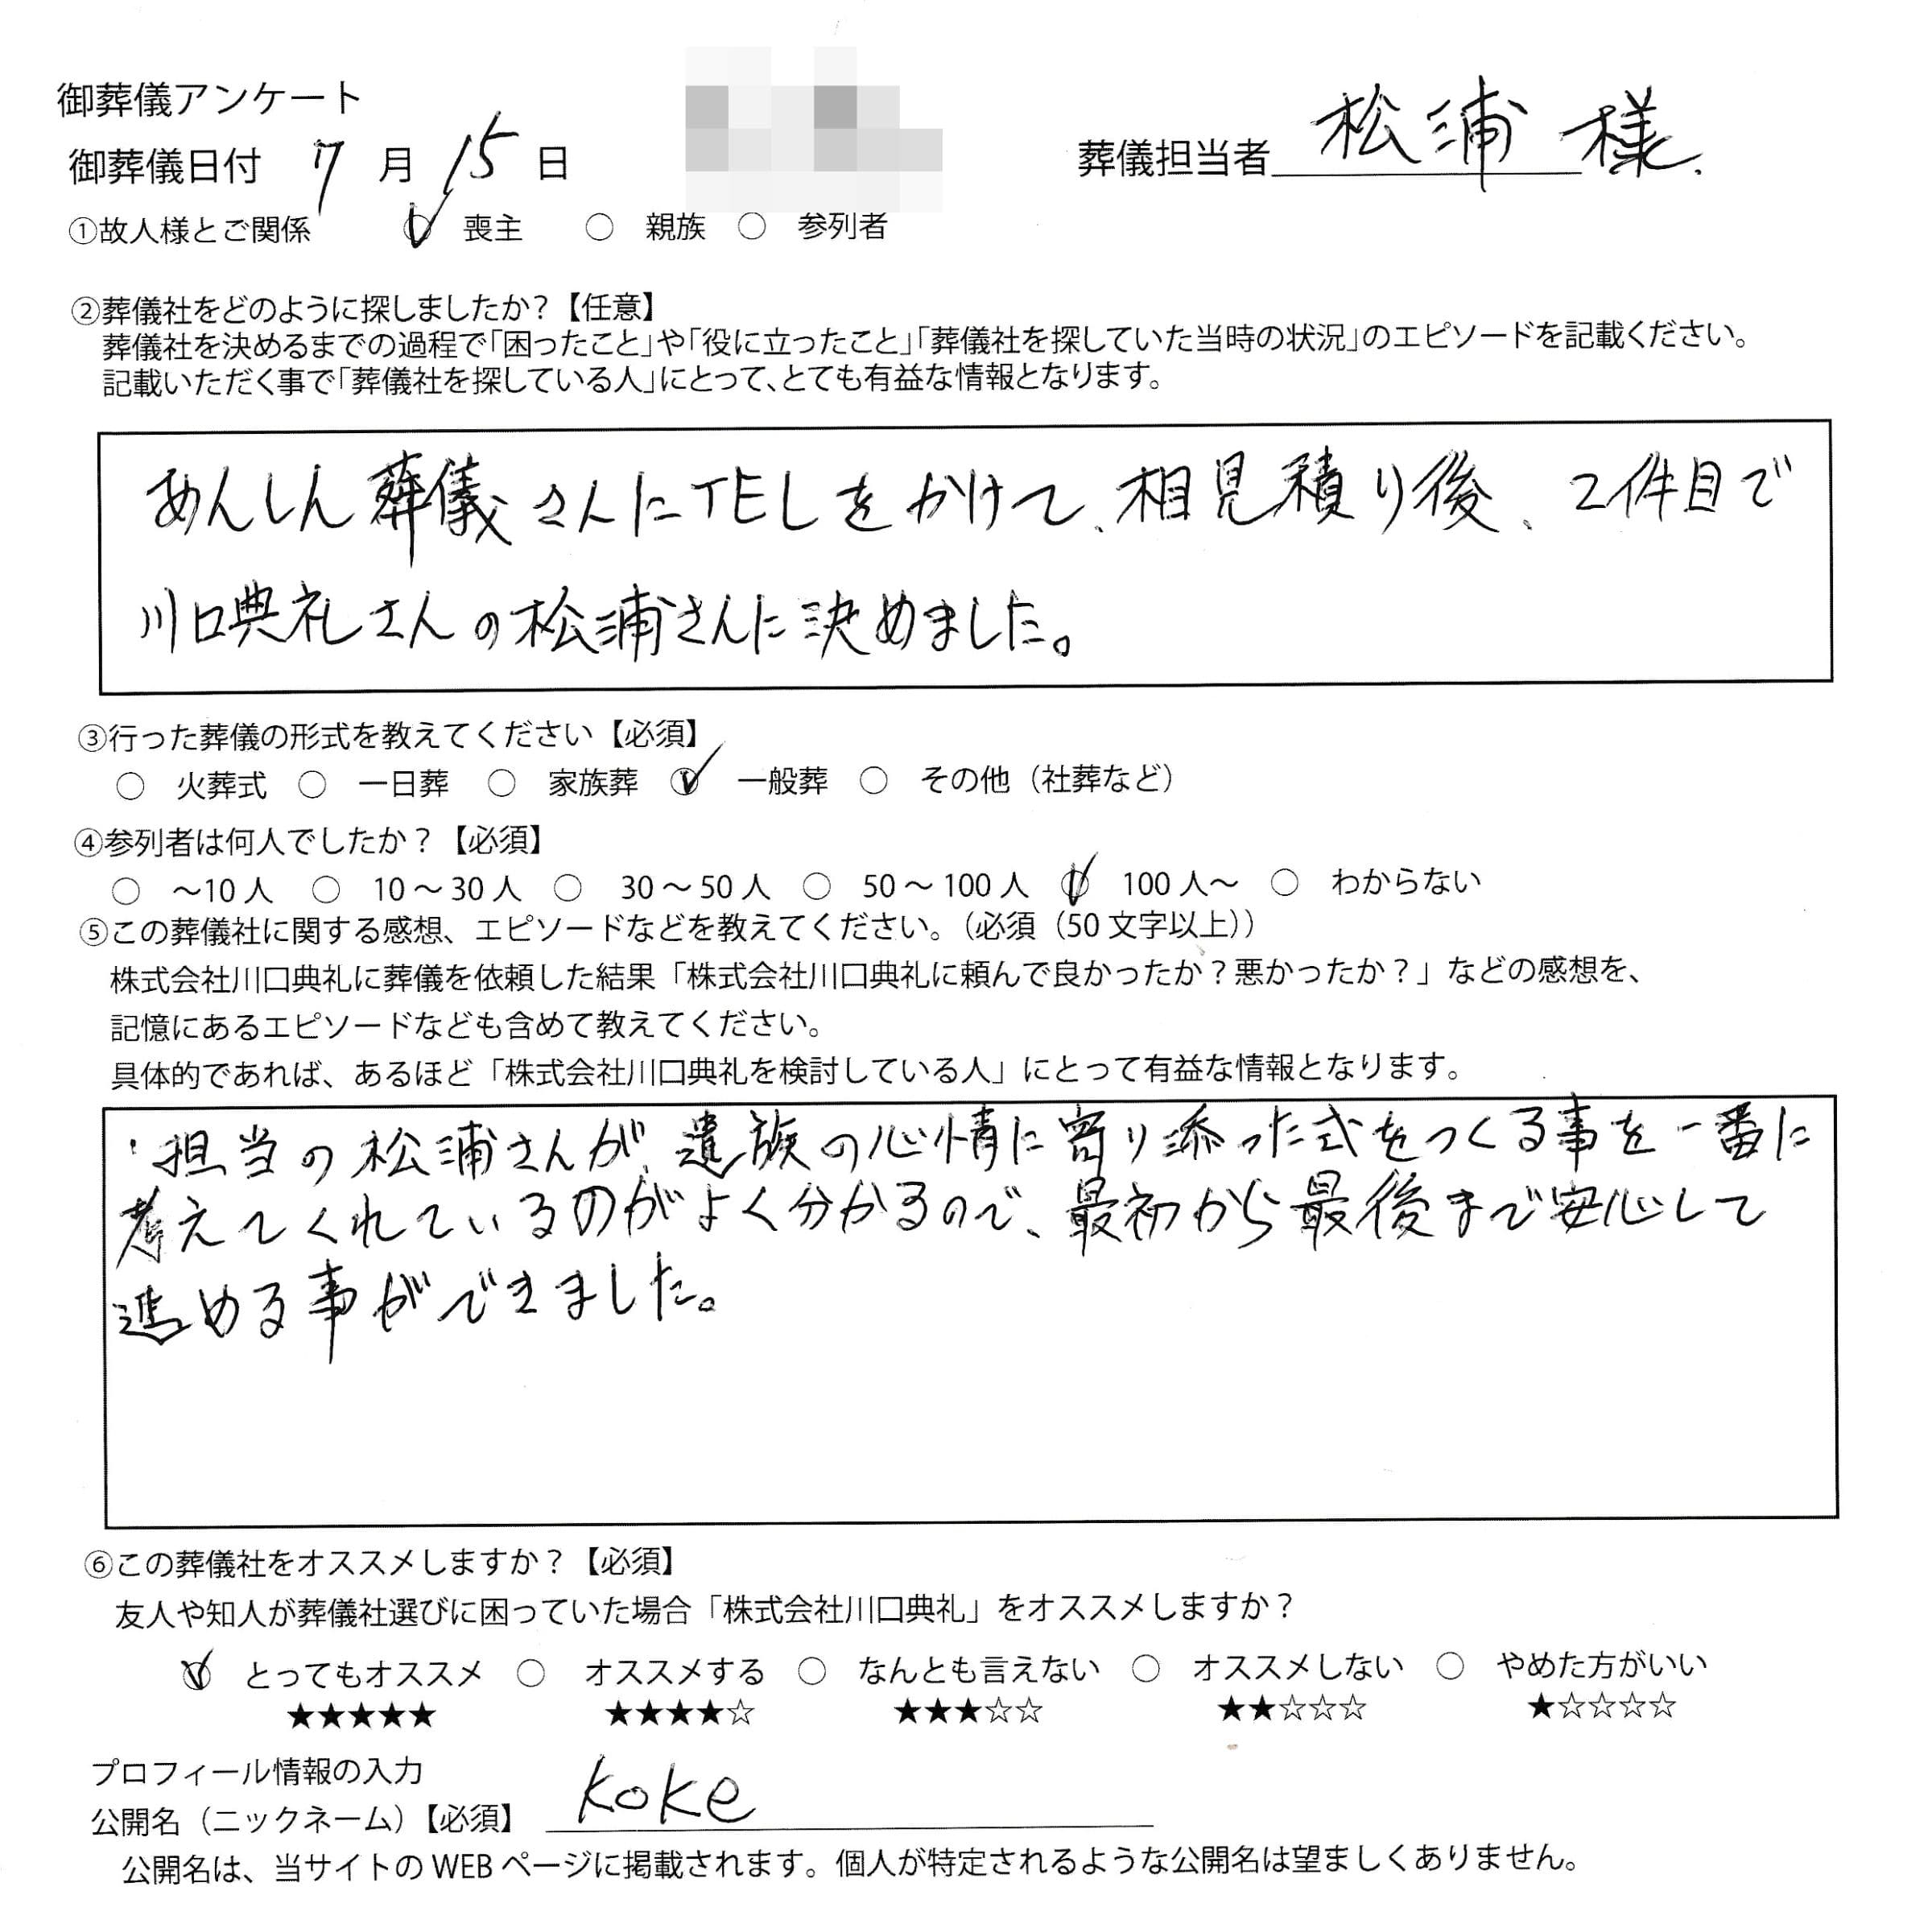 御葬儀アンケート
御葬儀日付 7月15日 葬儀担当者 松浦様.
①故人様とご関係 ○ 喪主 ○ 親族 ○ 参列者
②葬儀社をどのように探しましたか？【任意】
葬儀社を決めるまでの過程で「困ったこと」や「役に立ったこと」「葬儀社を探していた当時の状況」のエピソードを記載ください。
記載いただく事で「葬儀社を探している人」にとって、とても有益な情報となります。
あんしん葬儀さんにTELをかけて、相見積り後、2件目で
川口典礼さんの松浦さんに決めました。
③行った葬儀の形式を教えてください【必須】
○ 火葬式 ○ 一日葬 ○ 家族葬 ○ 一般葬 ○ その他（社葬など）
④参列者は何人でしたか？【必須】
○ ～10人 ○ 10～30人 ○ 30～50人 ○ 50～100人 ○ 100人～ ○ わからない
⑤この葬儀社に関する感想、エピソードなどを教えてください。（必須（50文字以上））
株式会社川口典礼に葬儀を依頼した結果「株式会社川口典礼に頼んで良かったか？悪かったか？」などの感想を、
記憶にあるエピソードなども含めて教えてください。
具体的であれば、あるほど「株式会社川口典礼を検討している人」にとって有益な情報となります。
・担当の松浦さんが、遺族の心情に寄り添った式をつくる事を一番に
考えてくれているのがよく分かるので、最初から最後まで安心して
進める事ができました。
⑥この葬儀社をオススメしますか？【必須】
友人や知人が葬儀社選びに困っていた場合「株式会社川口典礼」をオススメしますか？
○ とってもオススメ ○ オススメする ○ なんとも言えない ○ オススメしない ○ やめた方がいい
★★★★★ ★★★★☆ ★★★☆☆ ★★☆☆☆ ★☆☆☆☆
プロフィール情報の入力
公開名（ニックネーム）【必須】 koke
公開名は、当サイトのWEBページに掲載されます。個人が特定されるような公開名は望ましくありません。